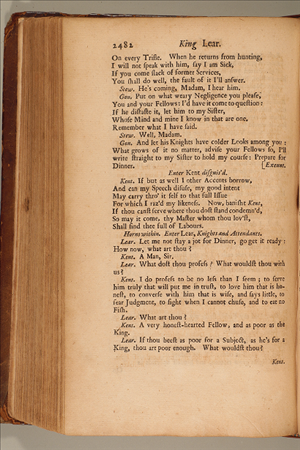 2482 King Lear.
On every Trifle. When he returns from hunting,
I will not speak with him, say I am Sick,
If you come slack of former Services,
You shall do well, the fault of it I'll answer.
Stew. He's coming, Madam, I hear him.
Gon. Put on what weary Negligence you please,
You and your Fellows: I'd have it come to question:
If he distaste it, let him to my Sister,
Whose Mind and mine I know in that are one.
Remember what I have said.
Stew. Well, Madam.
Gon. And let his Knights have colder Looks among you:
What grows of it no matter, advise your Fellows so, I'll
write straight to my Sister to hold my course: Prepare for
Dinner. [Exeunt.
Enter Kent disguis'd.
Kent. If but as well I other Accents borrow,
And can my Speech disuse, my good intent
May carry thro' it self to that full Issue
For which I raz'd my likeness. Now, banisht Kent,
If thou canst serve where thou dost stand condemn'd,
So may it come, thy Master whom thou lov'st,
Shall find thee full of Labours.
Horns within. Enter Lear, Knights and Attendants.
Lear. Let me not stay a jot for Dinner, go get it ready:
How now, what art thou?
Kent. A Man, Sir.
Lear. What dost thou profess? What wouldst thou with
us?
Kent. I do profess to be no less than I seem; to serve
him truly that will put me in trust, to love him that is ho-
nest, to converse with him that is wise, and says little, to
fear Judgment, to fight when I cannot chuse, and to eat no
Fish.
Lear. What art thou?
Kent. A very honest-hearted Fellow, and as poor as the
King.
Lear. If thou beest as poor for a Subject, as he's for a
King, thou art poor enough. What wouldst thou?
Kent.